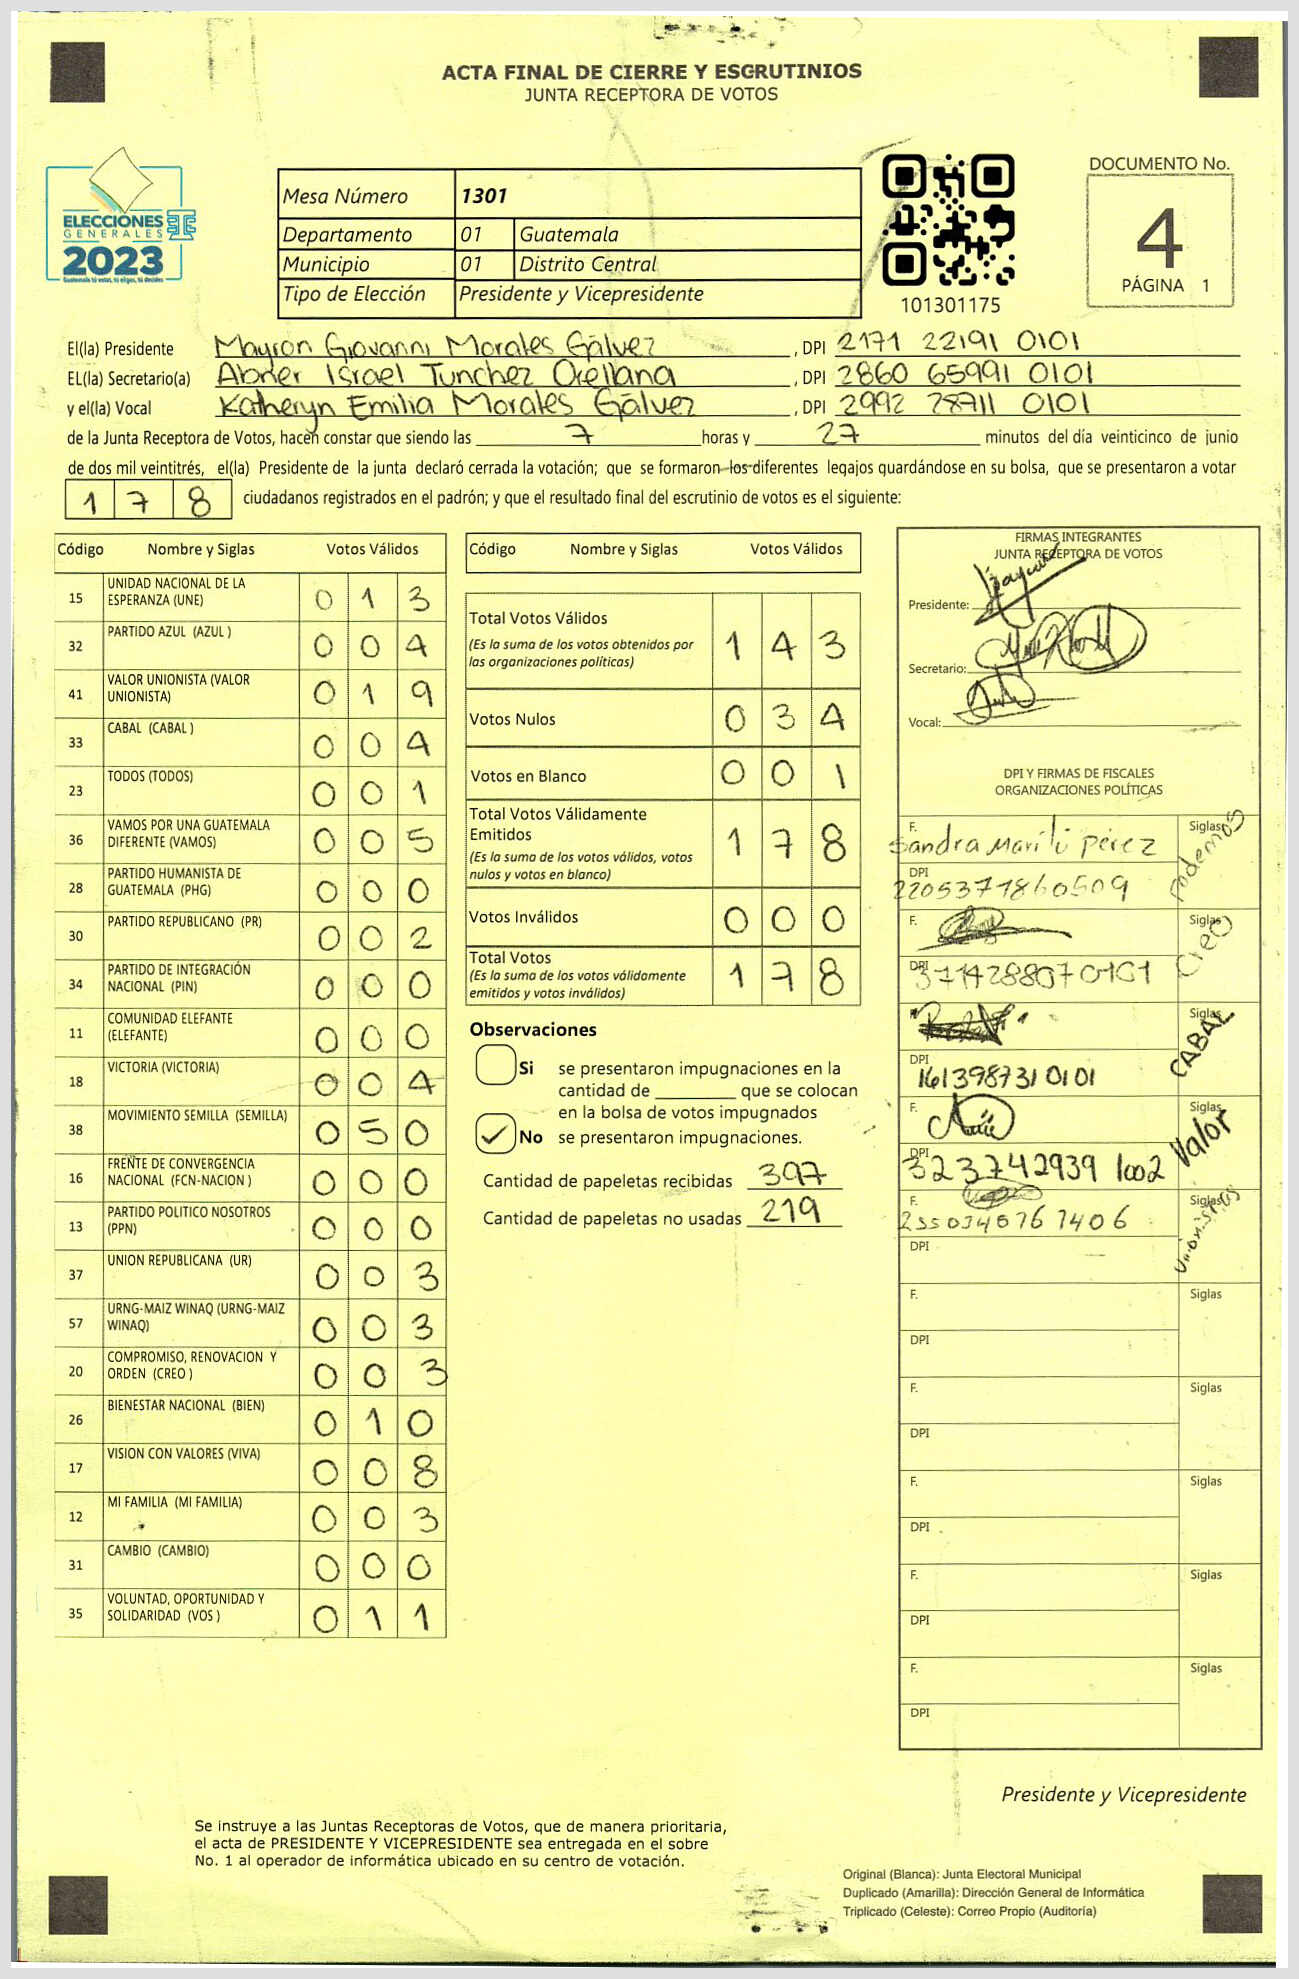 ACTA FINAL DE CIERRE Y ESCRUTINIOS
JUNTA RECEPTORA DE VOTOS
ELECCIONES
GENERALES
2023
Guatemala tú votas, tú eliges, tú decides
Mesa Número 1301
Departamento 01 Guatemala
Municipio 01 Distrito Central
Tipo de Elección Presidente y Vicepresidente
101301175
DOCUMENTO No.
4
PÁGINA 1
El(la) Presidente Mayron Giovanni Morales Gálvez, DPI 2171 22191 0101
EL(la) Secretario(a) Abner Israel Tunchez Orellana, DPI 2860 65991 0101
y el(la) Vocal Katheryn Emilia Morales Gálvez, DPI 2992 28711 0101
de la Junta Receptora de Votos, hacen constar que siendo las 7 horas y 27 minutos del día veinticinco de junio
de dos mil veintitrés, el(la) Presidente de la junta declaró cerrada la votación; que se formaron los diferentes legajos quardándose en su bolsa, que se presentaron a votar
178 ciudadanos registrados en el padrón; y que el resultado final del escrutinio de votos es el siguiente:
Código Nombre y Siglas Votos Válidos
15 UNIDAD NACIONAL DE LA ESPERANZA (UNE) 0 1 3
32 PARTIDO AZUL (AZUL ) 0 0 4
41 VALOR UNIONISTA (VALOR UNIONISTA) 0 1 9
33 CABAL (CABAL ) 0 0 4
23 TODOS (TODOS) 0 0 1
36 VAMOS POR UNA GUATEMALA DIFERENTE (VAMOS) 0 0 5
28 PARTIDO HUMANISTA DE GUATEMALA (PHG) 0 0 0
30 PARTIDO REPUBLICANO (PR) 0 0 2
34 PARTIDO DE INTEGRACIÓN NACIONAL (PIN) 0 0 0
11 COMUNIDAD ELEFANTE (ELEFANTE) 0 0 0
18 VICTORIA (VICTORIA) 0 0 4
38 MOVIMIENTO SEMILLA (SEMILLA) 0 5 0
16 FRENTE DE CONVERGENCIA NACIONAL (FCN-NACION ) 0 0 0
13 PARTIDO POLITICO NOSOTROS (PPN) 0 0 0
37 UNION REPUBLICANA (UR) 0 0 3
57 URNG-MAIZ WINAQ (URNG-MAIZ WINAQ) 0 0 3
20 COMPROMISO, RENOVACION Y ORDEN (CREO ) 0 0 3
26 BIENESTAR NACIONAL (BIEN) 0 1 0
17 VISION CON VALORES (VIVA) 0 0 8
12 MI FAMILIA (MI FAMILIA) 0 0 3
31 CAMBIO (CAMBIO) 0 0 0
35 VOLUNTAD, OPORTUNIDAD Y SOLIDARIDAD (VOS ) 0 1 1
Código Nombre y Siglas Votos Válidos
Total Votos Válidos 1 4 3
(Es la suma de los votos obtenidos por
las organizaciones políticas)
Votos Nulos 0 3 4
Votos en Blanco 0 0 1
Total Votos Válidamente
Emitidos 1 7 8
(Es la suma de los votos válidos, votos
nulos y votos en blanco)
Votos Inválidos 0 0 0
Total Votos 1 7 8
(Es la suma de los votos válidamente
emitidos y votos inválidos)
Observaciones
Si se presentaron impugnaciones en la
cantidad de ________ que se colocan
en la bolsa de votos impugnados
No se presentaron impugnaciones.
Cantidad de papeletas recibidas 397
Cantidad de papeletas no usadas 219
FIRMAS INTEGRANTES
JUNTA RECEPTORA DE VOTOS
Presidente:
Secretario:
Vocal:
DPI Y FIRMAS DE FISCALES
ORGANIZACIONES POLÍTICAS
F. Sandra Marilú Pérez Siglas Podemos
DPI 2205371860509
F. Siglas Creo
DPI 3714288070101
Siglas CABAL
DPI 1613987310101
F. Siglas Valor
DPI 323742939 1002
F. 2550340767406 Siglas Unionistas
DPI
F. Siglas
DPI
F. Siglas
DPI
F. Siglas
DPI
F. Siglas
DPI
F. Siglas
DPI
Presidente y Vicepresidente
Se instruye a las Juntas Receptoras de Votos, que de manera prioritaria,
el acta de PRESIDENTE Y VICEPRESIDENTE sea entregada en el sobre
No. 1 al operador de informática ubicado en su centro de votación.
Original (Blanca): Junta Electoral Municipal
Duplicado (Amarilla): Dirección General de Informática
Triplicado (Celeste): Correo Propio (Auditoría)